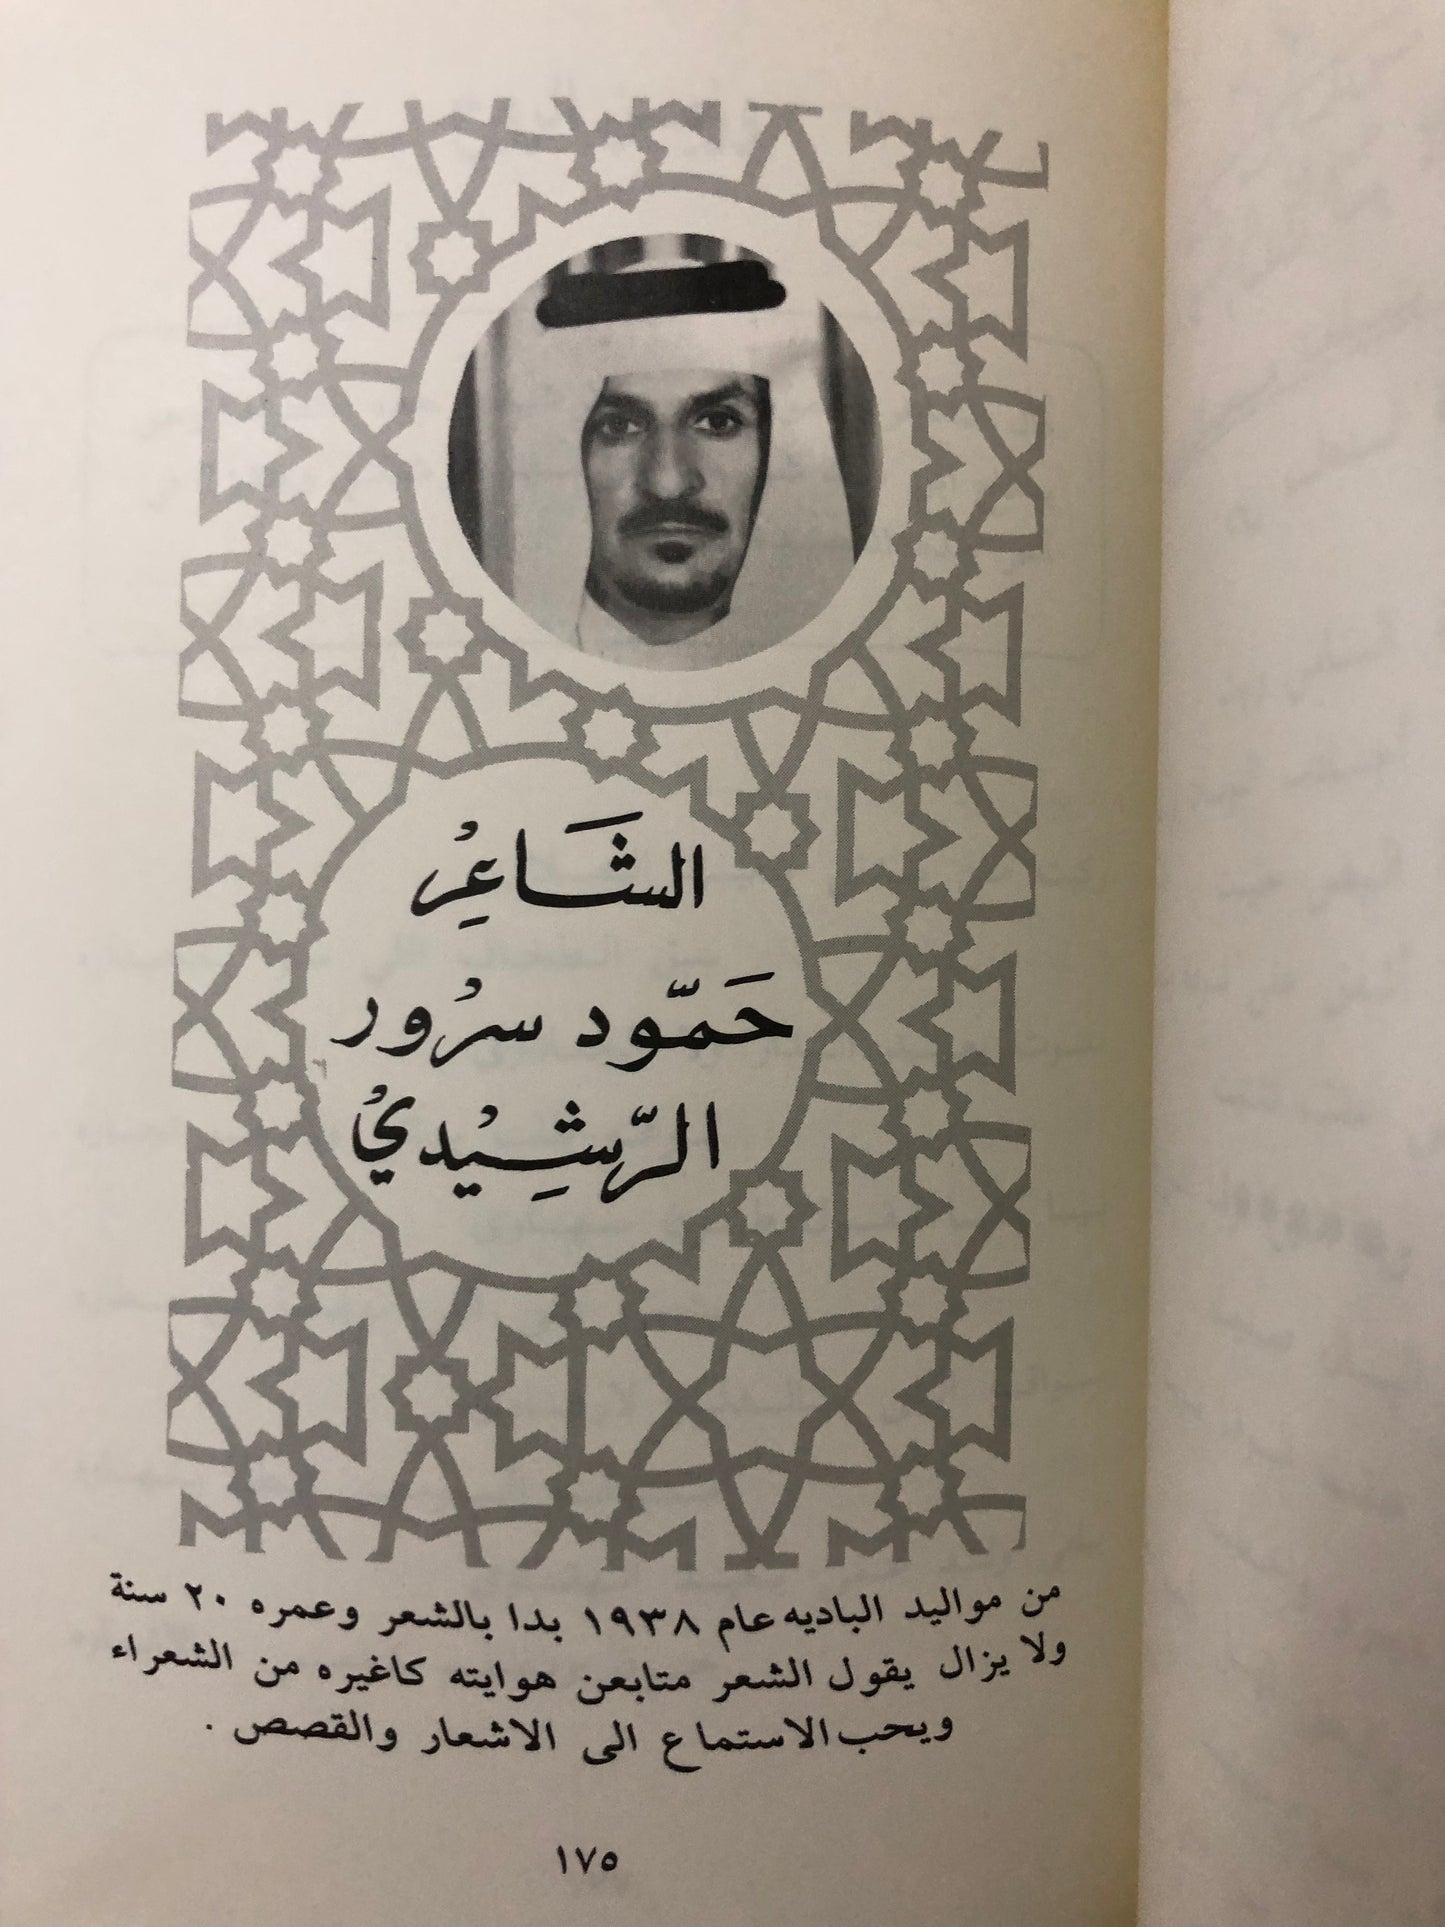 الشَّاعِرْ
حَمّود سرْور
الرّشِيْدي
من مواليد الباديه عام ١٩٣٨ بدا بالشعر وعمره ٢٠ سنة
ولا يزال يقول الشعر متابعن هوايته كاغيره من الشعراء
ويحب الاستماع الى الاشعار والقصص .
١٧٥